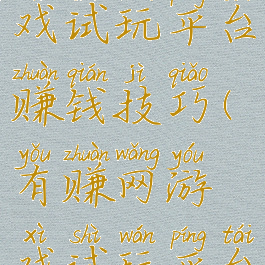 戏试玩平台
zhuàn qián jì qiǎo
赚钱技巧(
yǒu zhuàn wǎng yóu
有赚网游
xì shì wán píng tái
戏试玩平台